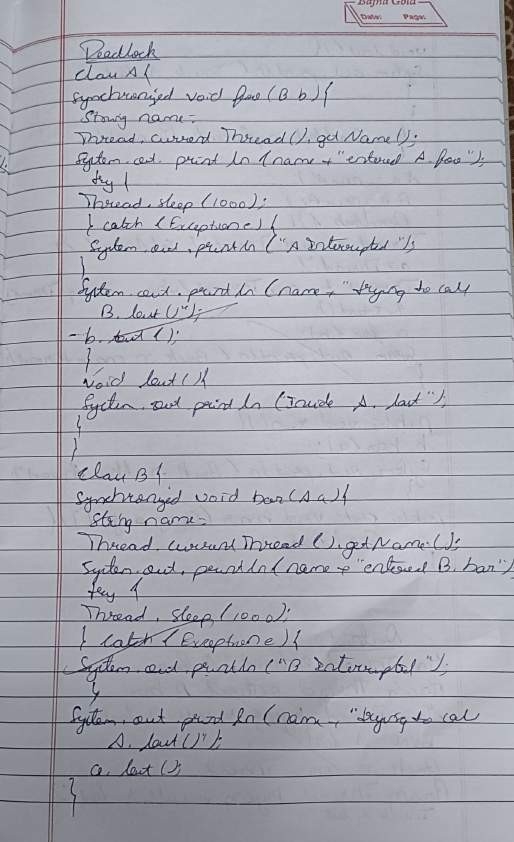 Bajna Gold
Date: Page:
Deadlock
class A {
synchronized void foo (B b) {
String name =
Thread. current Thread (). get Name ();
System. out. print ln (name + "entered A. foo");
try {
Thread. sleep (1000);
} catch (Exception e) {
System. out. println ("A Interrupted");
}
System. out. print ln (name + "trying to call
B. last ()");
- b. last ();
}
void last () {
System. out print ln (Inside A. last");
}
}
class B {
synchronized void bar (A a) {
String name =
Thread. current Thread (). get Name ();
System. out. println (name + "entered B. bar")
try {
Thread. sleep (1000);
} catch (Exception e) {
System. out. println ("B Interrupted");
}
System. out print ln (name + "trying to call
A. last ()");
a. last ();
}